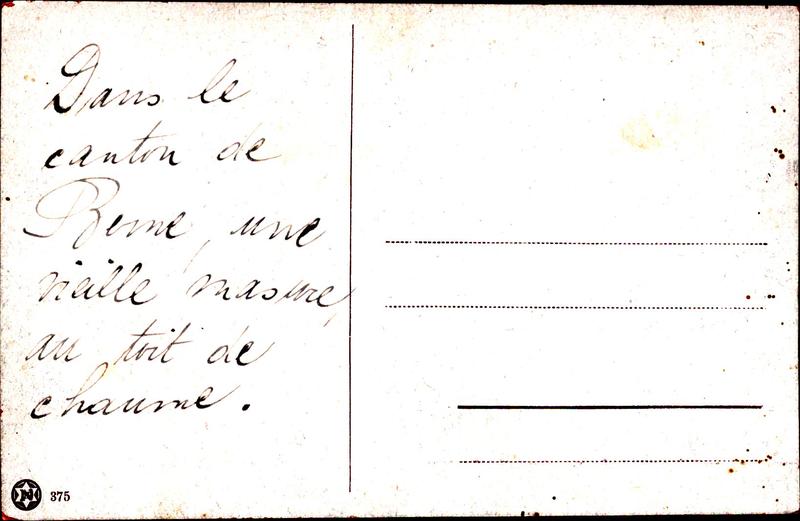 Dans le
canton de
Berne, une
vieille masure,
au toit de
chaume.
N 375